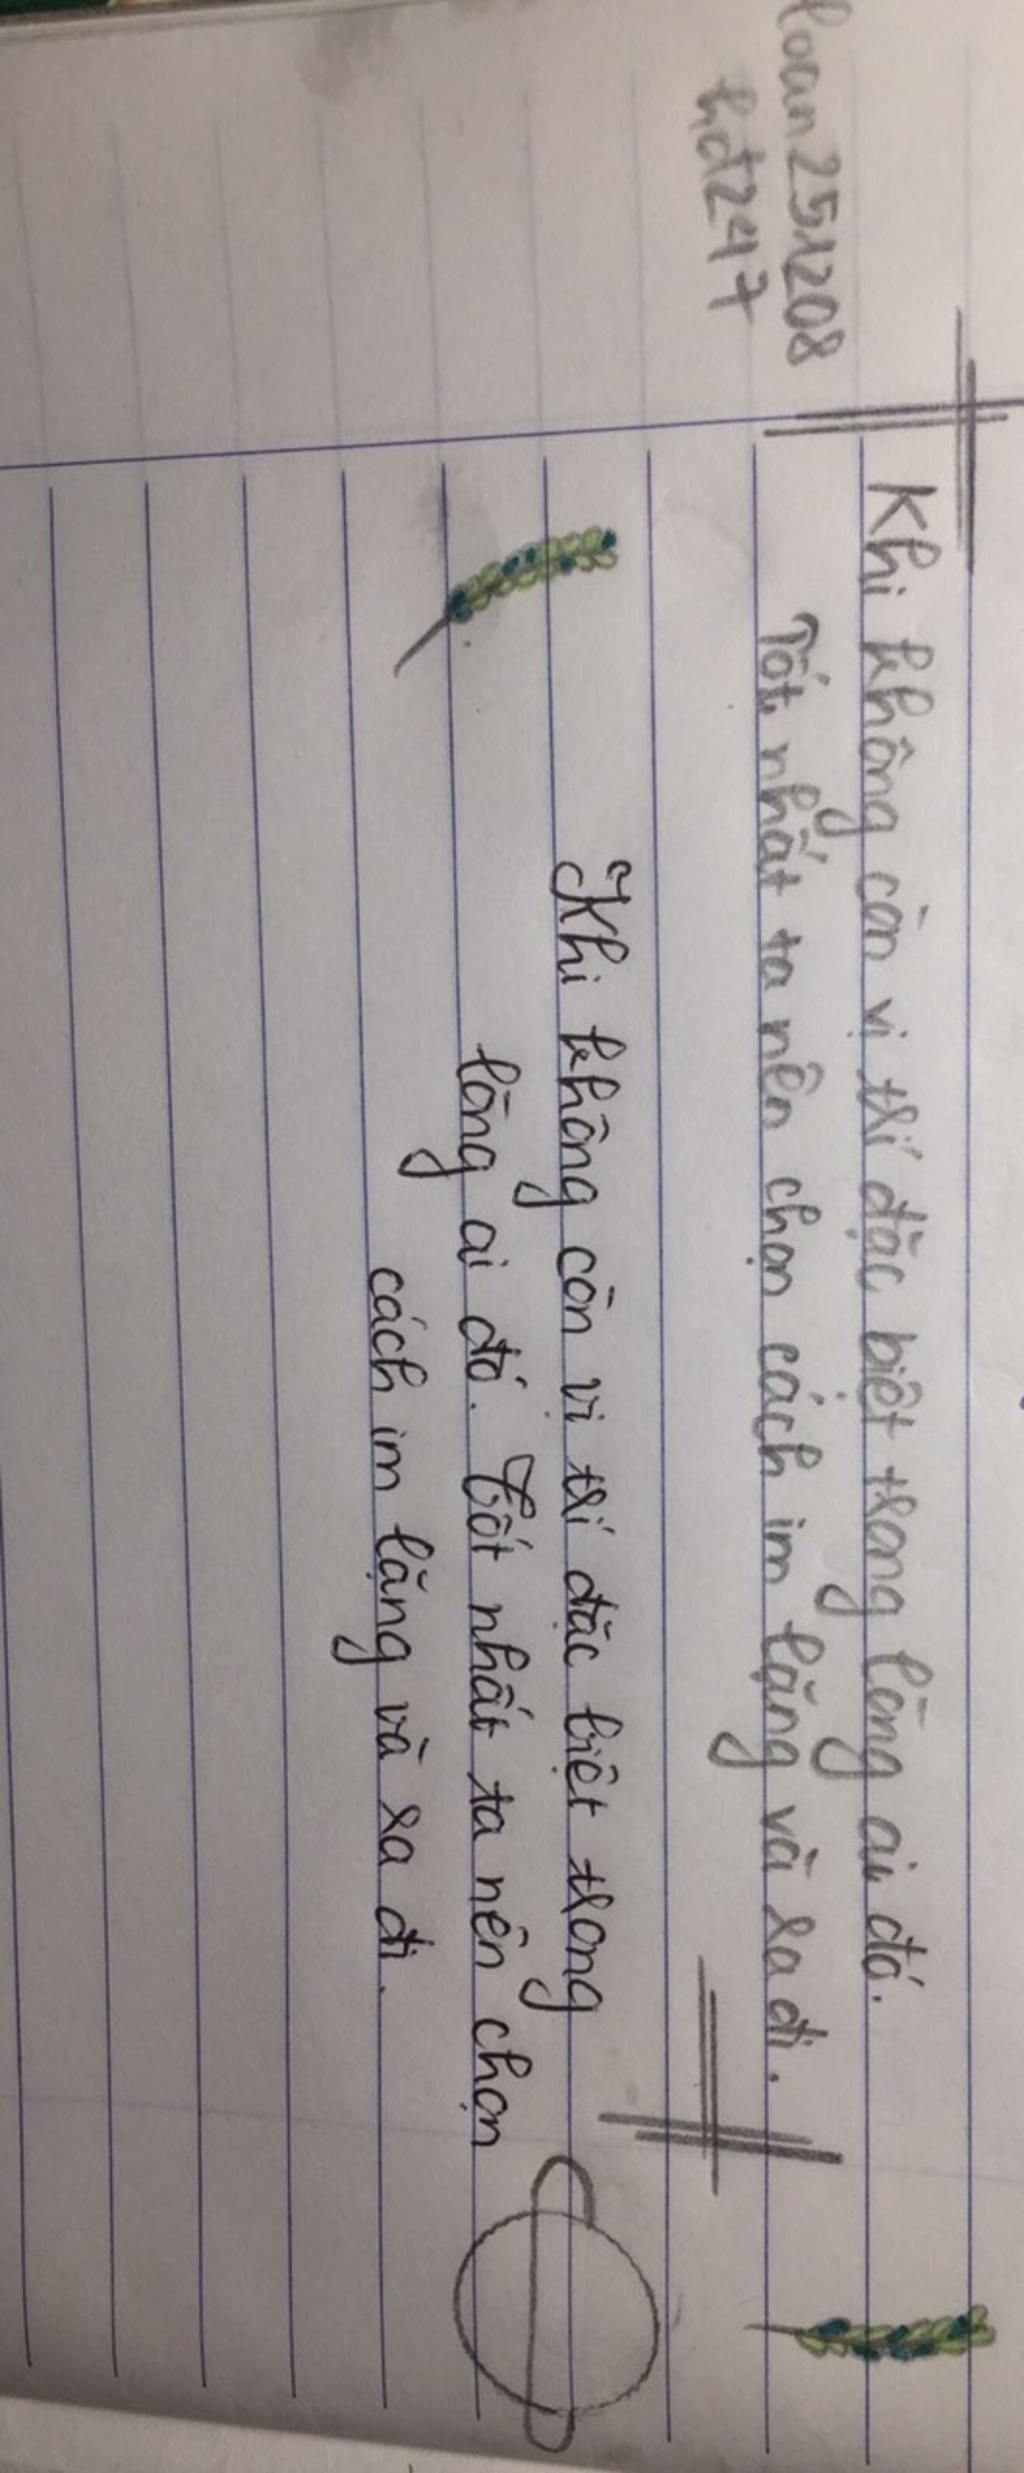 loan251208
hdt247
Khi không còn vị trí đặc biệt trong lòng ai đó.
Tốt nhất ta nên chọn cách im lặng và ra đi.
Khi không còn vị trí đặc biệt trong
lòng ai đó. Tốt nhất ta nên chọn
cách im lặng và ra đi.